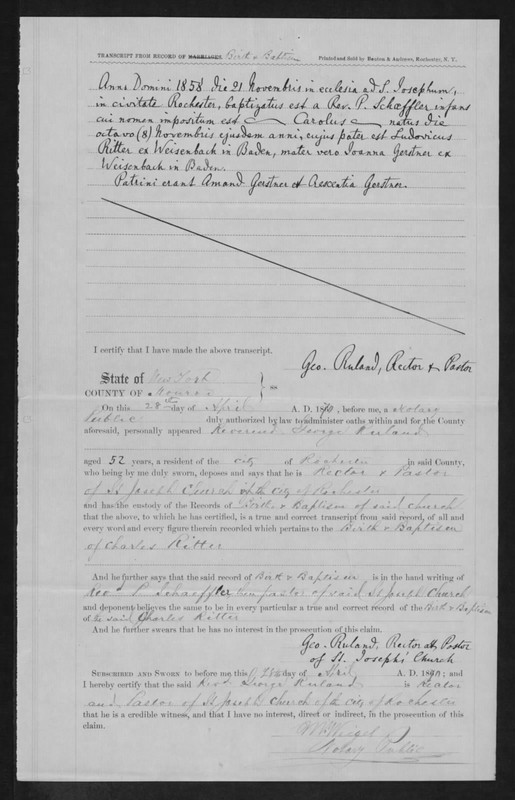 TRANSCRIPT FROM RECORD OF MARRIAGES. Birth & Baptism Printed and Sold by Benton & Andrews, Rochester, N. Y.
Anni Domini 1858 die 21 Novembris in ecclesia ad S. Josephum,
in civitate Rochester, baptizatus est a Rev. P. Schæffler infans
cui nomen impositum est Carolus natus die
octavo (8) Novembris ejusdem anni, cujus pater est Ludovicus
Ritter ex Weisenbach in Baden, mater vero Joanna Gerstner ex
Weisenbach in Baden.
Patrini erant Amand Gerstner et Crescentia Gerstner.
I certify that I have made the above transcript.
Geo. Ruland, Rector & Pastor
State of New York
COUNTY OF Monroe
On this 28th day of April A. D. 1890, before me, a Notary
Public duly authorized by law to administer oaths within and for the County
aforesaid, personally appeared Reverend George Ruland
aged 52 years, a resident of the city of Rochester in said County,
who being by me duly sworn, deposes and says that he is Rector & Pastor
of St Joseph Church of the City of Rochester
and has the custody of the Records of Birth & Baptism of said church
that the above, to which he has certified, is a true and correct transcript from said record, of all and
every word and every figure therein recorded which pertains to the Birth & Baptism
of Charles Ritter
And he further says that the said record of Birth & Baptism is in the hand writing of
Rev. P. Schaeffler then pastor of said St Joseph Church
and deponent believes the same to be in every particular a true and correct record of the Birth & Baptism
of the said Charles Ritter
And he further swears that he has no interest in the prosecution of this claim.
Geo. Ruland, Rector & Pastor
of St. Joseph's Church
SUBSCRIBED AND SWORN to before me this 28th day of April A. D. 1890; and
I hereby certify that the said Revd George Ruland is Rector
and Pastor of St Joseph Church of the City of Rochester
that he is a credible witness, and that I have no interest, direct or indirect, in the prosecution of this
claim.
Notary Public